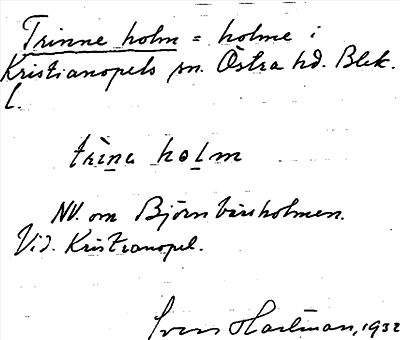 Trinne holm = holme i
Kristianopels sn. Östra hd. Blek.
l.
trìna holm
NV. om Björnbärsholmen.
Vid. Kristianopel.
Sven Hartman, 1932